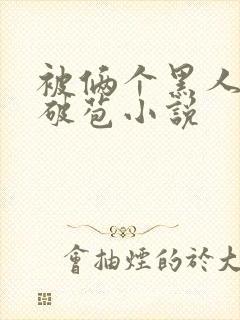 被俩个黑人
破苞小説
會抽煙的於大